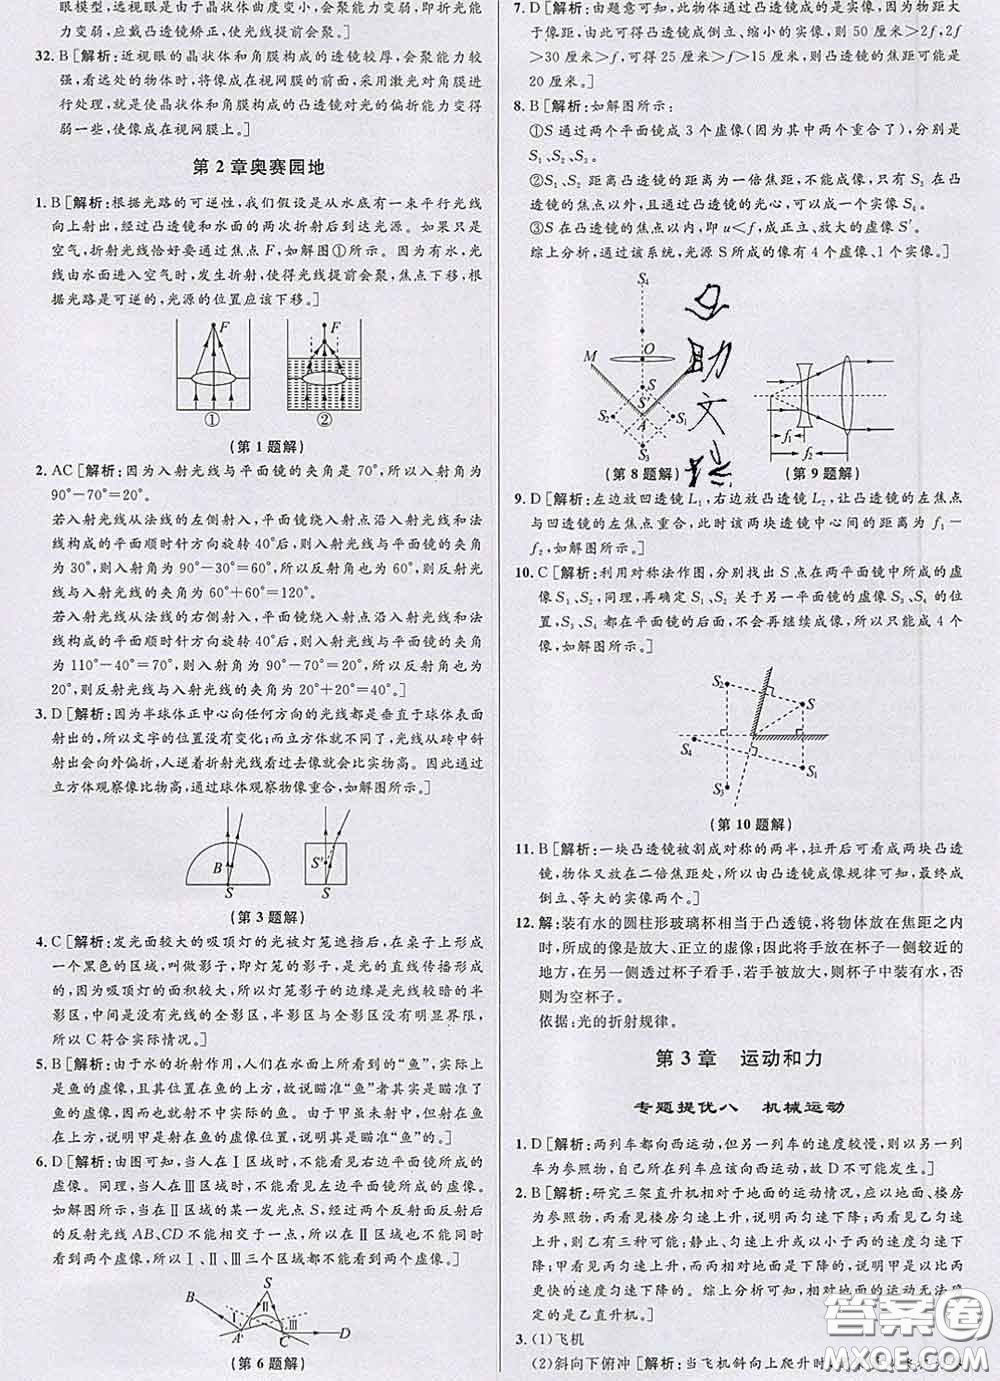 眼模型，远视眼是由于晶状体曲度变小，会聚能力变弱，即折光能
力变弱，应戴凸透镜矫正，使光线提前会聚。]
32. B [解析：近视眼的晶状体和角膜构成的透镜较厚，会聚能力较
强，看远处的物体时，将像成在视网膜的前面，采用激光对角膜进
行处理，就是使晶状体和角膜构成的凸透镜对光的偏折能力变得
弱一些，使像成在视网膜上。]
第 2 章奥赛园地
1. B [解析：根据光路的可逆性，我们假设是从水底有一束平行光线
向上射出，经过凸透镜和水面的两次折射后到达光源。如果只是
空气，折射光线恰好要通过焦点 F，如解图①所示。因为有水，光
线由水面进入空气时，发生折射，使得光线提前会聚，焦点下移，根
据光路是可逆的，光源的位置应该下移。]
F F
① ②
(第 1 题解)
2. AC [解析：因为入射光线与平面镜的夹角是 70°，所以入射角为
90°－70°＝20°。
若入射光线从法线的左侧射入，平面镜绕入射点沿入射光线和法
线构成的平面顺时针方向旋转 40°后，则入射光线与平面镜的夹角
为 30°，则入射角为 90°－30°＝60°，所以反射角也为 60°，则反射光
线与入射光线的夹角为 60°＋60°＝120°。
若入射光线从法线的右侧射入，平面镜绕入射点沿入射光线和法
线构成的平面顺时针方向旋转 40°后，则入射光线与平面镜的夹角
为 110°－40°＝70°，则入射角为 90°－70°＝20°，所以反射角也为
20°，则反射光线与入射光线的夹角为 20°＋20°＝40°。]
3. D [解析：因为半球体正中心向任何方向的光线都是垂直于球体表面
射出的，所以文字的位置没有变化；而立方体就不同，光线从砖中斜
射出会向外偏折，人逆着折射光线看过去像就会比实物高。因此通过
立方体观察像比物高，通过球体观察物像重合，如解图所示。]
B S S' S
(第 3 题解)
4. C [解析：发光面较大的吸顶灯的光被灯笼遮挡后，在桌子上形成
一个黑色的区域，叫做影子，即灯笼的影子，是光的直线传播形成
的，因为吸顶灯的面积较大，所以灯笼影子的边缘是光线较暗的半
影区，中间是没有光线的全影区，半影区与全影区没有明显界限，
所以 C 符合实际情况。]
5. B [解析：由于水的折射作用，人们在水面上所看到的“鱼”，实际是
鱼的虚像，且其位置在鱼的上方，故说瞄准“鱼”者其实是瞄准了
鱼的虚像，但没有射中实际的鱼。由于甲虽未射中，但射在鱼的
上方，说明甲是射在鱼的虚像位置，故可以说甲瞄准了“鱼”。]
6. D [解析：由图可知，当人在Ⅰ区域时，不能看见右边平面镜所成的虚
像。同理，当人在Ⅲ区域时，不能看见左边平面镜所成的虚像。
如解图所示，当在Ⅱ区域的某一发光点 S，经过两个反射面反射后
的反射光线 AB、CD 不能相交于一点，所以在Ⅱ区域不能同时
看到两个虚像，所以Ⅰ、Ⅱ、Ⅲ三个区域都不能看到两个虚像。]
S B Ⅰ Ⅱ Ⅲ A C D
(第 6 题解)
7. D [解析：由题意可知，此物体通过凸透镜成的是实像，因为物大
于像，由此可得凸透镜成倒立、缩小的实像，则 50 厘米＞2f，2f
＞30 厘米＞f，可得 25 厘米＞f＞15 厘米，则凸透镜的焦距可能是
20 厘米。]
8. B [解析：如解图所示：
①S 通过两个平面镜成 3 个虚像（因为其中两个重合了），分别是
S₁、S₂、S₃。
②S₁、S₂ 距离凸透镜的距离为一倍焦距，不能成像，只有 S₃ 在凸
透镜的焦点以外，且通过凸透镜的光心，可以成一个实像 S₄。
③S 在凸透镜的焦点以内，即 u＜f，成正立、放大的虚像 S'。
综上分析，通过该系统，光源 S 所成的像有 4 个虚像、1 个实像。]
S₄ M O S S' S₂ A S₁ S₃
f₁ f₂
(第 8 题解) (第 9 题解)
9. D [解析：左边放凹透镜 L₁，右边放凸透镜 L₂，让凸透镜的左焦点
与凹透镜的左焦点重合，此时该两块透镜中心间的距离为 f₁－
f₂，如解图所示。]
10. C [解析：利用对称法作图，分别找出 S 点在两平面镜中所成的虚
像 S₁、S₂，同理，再确定 S₁、S₂ 关于另一平面镜的虚像 S₃、S₄ 的位
置，S₃、S₄ 都在平面镜的后面，不会再继续成像，所以只能成 4 个
像，如解图所示。]
S₂ S S₄ S₃ S₁
(第 10 题解)
11. B [解析：一块凸透镜被割成对称的两半，拉开后可看成两块凸透
镜，物体又放在二倍焦距处，所以由凸透镜成像规律可知，最终成
倒立、等大的实像两个。]
12. 解：装有水的圆柱形玻璃杯相当于凸透镜，将物体放在焦距之内
时，所成的像是放大、正立的虚像；因此将手放在杯子一侧较近的
地方，在另一侧透过杯子看手，若手被放大，则杯子中装有水，否
则为空杯子。
依据：光的折射规律。
第 3 章 运动和力
专题提优八 机械运动
1. D [解析：两列车都向西运动，但另一列车的速度较慢，则以另一列
车为参照物，自己所在列车应该向西运动，故 D 不可能发生。]
2. B [解析：研究三架直升机相对于地面的运动情况，应以地面、楼房
为参照物，丙看见楼房匀速上升，说明丙匀速下降；丙看见乙匀速
上升，则乙有三种可能：静止、匀速上升或以小于丙的速度匀速下
降；甲看见丙匀速上升，丙在匀速下降，说明甲是以比丙
更快的速度匀速下降的。综上分析可知，相对地面的运动无法确
定的是乙直升机。]
3. (1) 飞机
(2) 斜向下俯冲 [解析：当飞机斜向上爬升时
答案圈
MXQE.COM